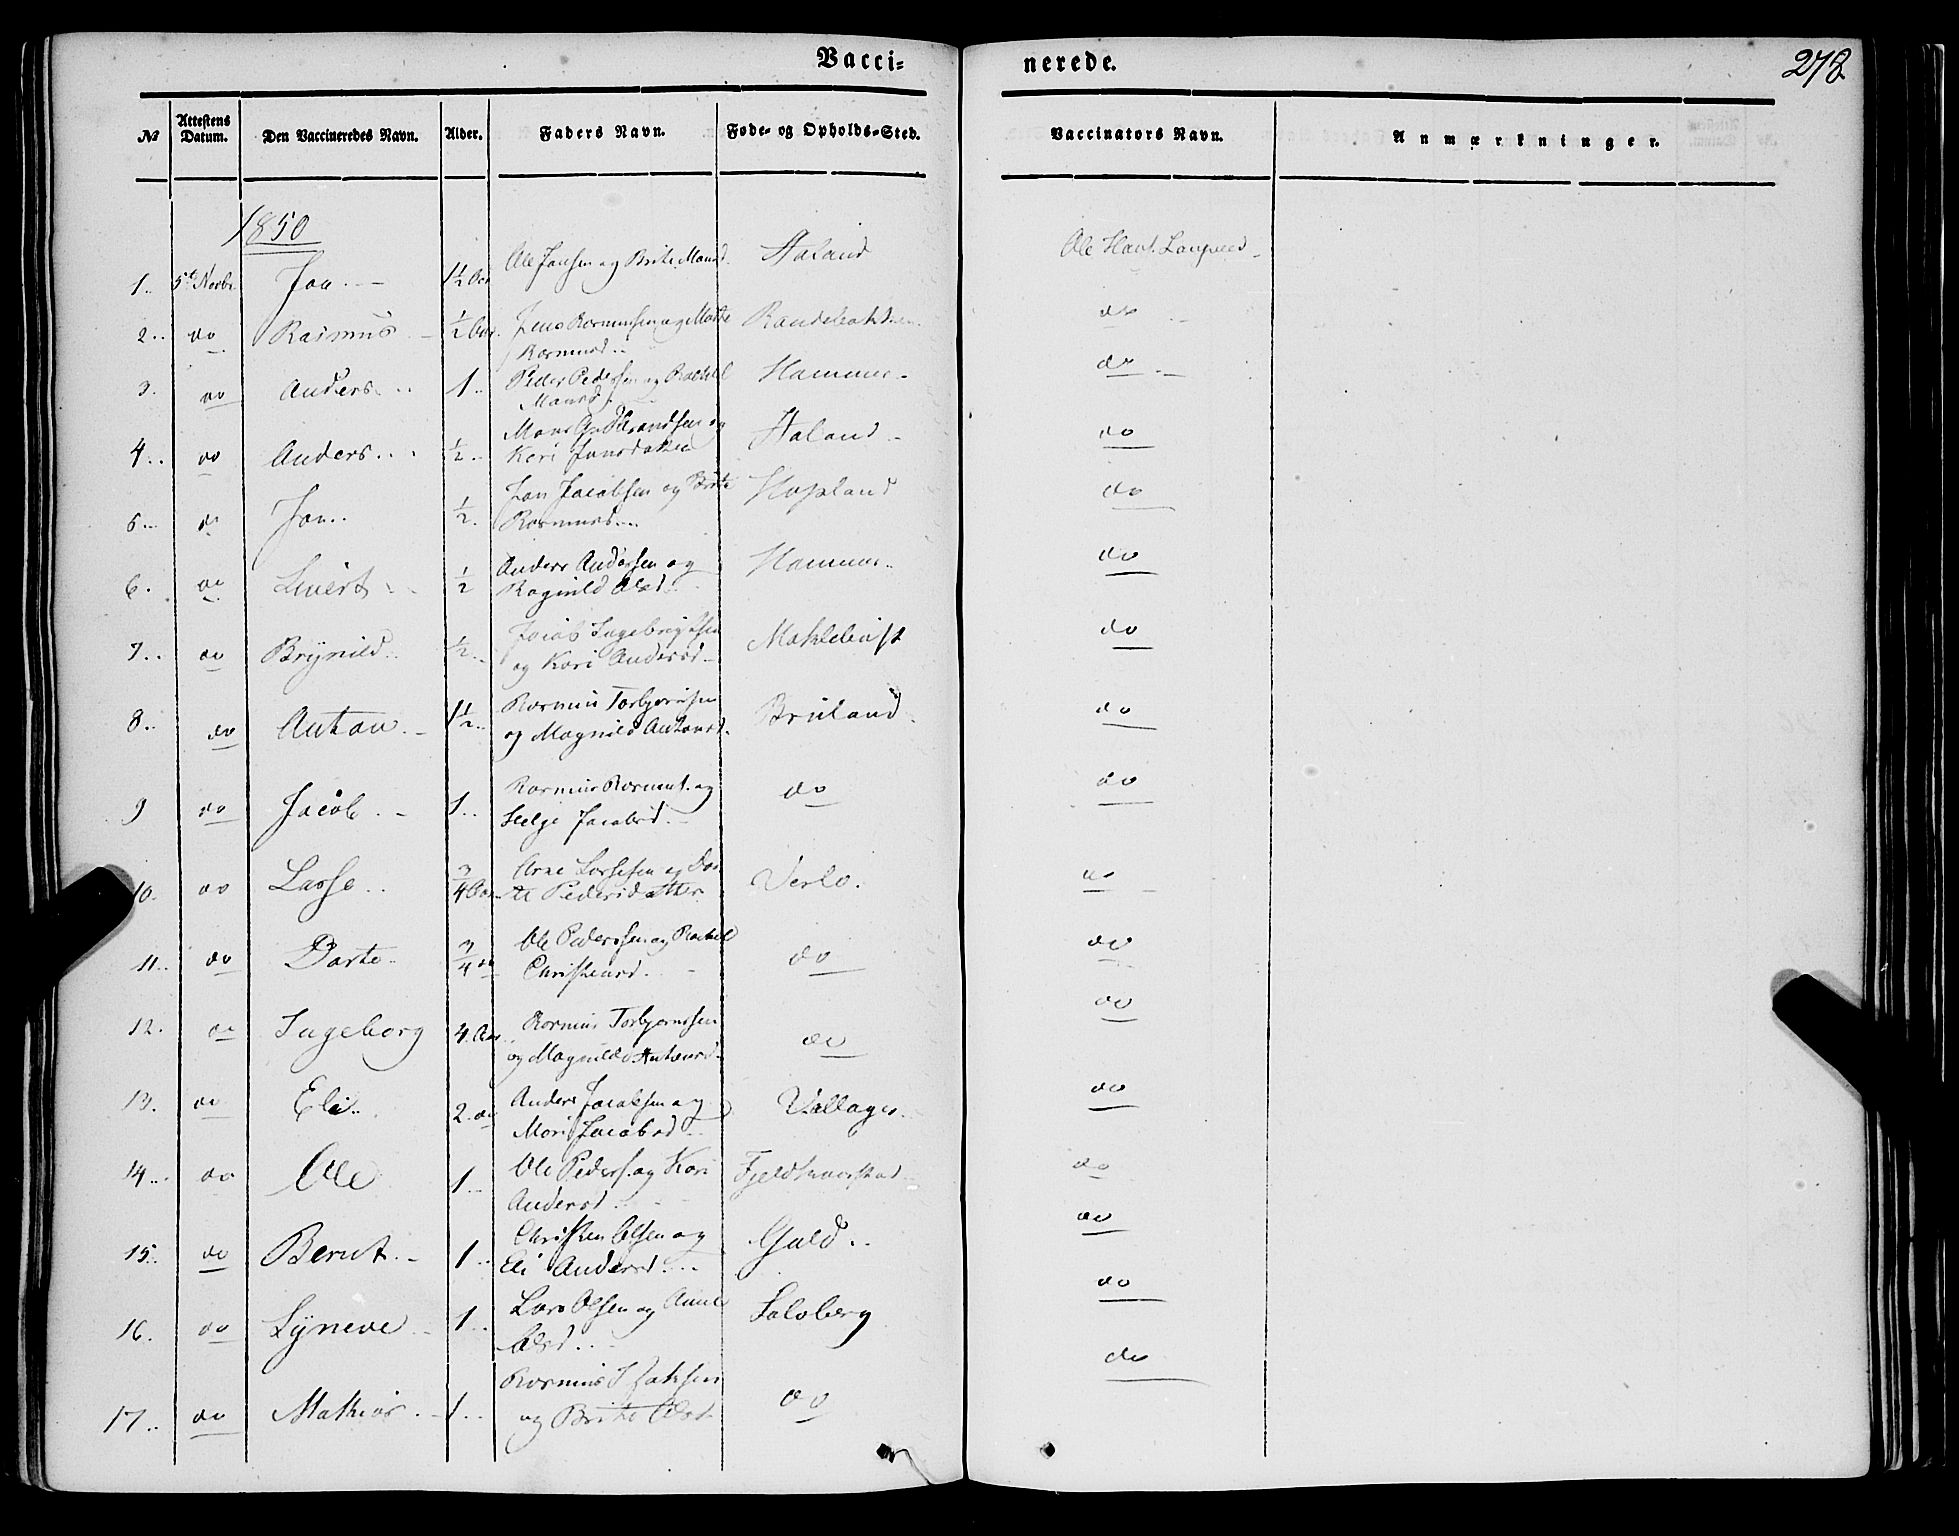 Vacci= nerede.
278
№ Attestens Datum. Den Vaccineredes Navn. Alder. Faders Navn. Føde- og Opholds-Sted. Vaccinators Navn. Anmærkninger.
1850
1.. 5te Novbr Jon. 1½ Aar Ole Jonsen og Brite Monsd. Aaland Ole
2.. do Rasmus ½ Aar. Jens Rasmussen og Marthe do
Rasmusd..
3. do Anders.. 1.. Peder Pedersen og Rachel Hammer do
Monsd.
4.. do Anders... ½.. Mons og Aaland do
Kari Jonsdatter
5... do Jon.. ½. Jon Jacobsen og Brite Hopland do
Rasmusd...
6. do Sivert ½ Anders Andersen og Hammer.. do
Ragnild Olsd.
7.. do Brynild.. ½.. Jacob Ingebrigtsen Møklebust do
og Kari Andersd..
8.. do Anton. 1½.. Rasmus Torbjørnsen Bruland. do
og Magnild Antonsd.
9 do Jacob. 1.. Rasmus Rasmus. og do do
Helge Jacobsd.
10. do Lasse.. ¾ Aar Arne Lassesen og Dor- Verlo. do
te Pedersdatter
11.. do Dorte.. ¾ do Ole Pederssen og Rachel do do
Christensd.
12. do Ingeborg 4. Aar Rasmus Torbjørnssen do do
og Magnilde Antonsd.
13. do Eli.. 2. do Anders Jacobsen og do
Mari Jacobsd..
14... do Ole 1... Ole Peders. og Kari do
Andersd..
15.. do Bernt. 1.. Christen Olsen og Guld.. do
Eli Andersd....
16. do Syneve 1.. Lars Olsen og Anne Solsberg do
Olsd...
17.. do Mathias. 1.. Rasmus Isaksen do do
og Brite Olsd.